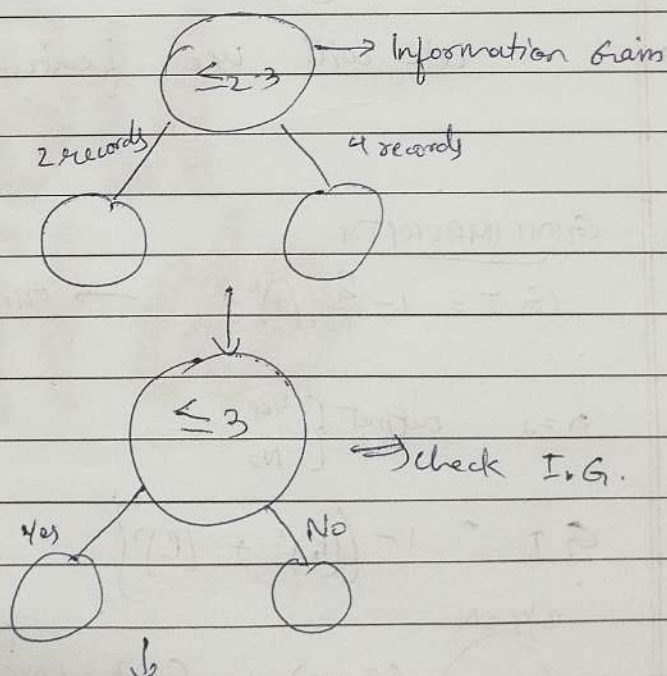 ≤2.3 → Information Gain
2 records 4 records
≤ 3 ⇒ check I.G.
Yes No